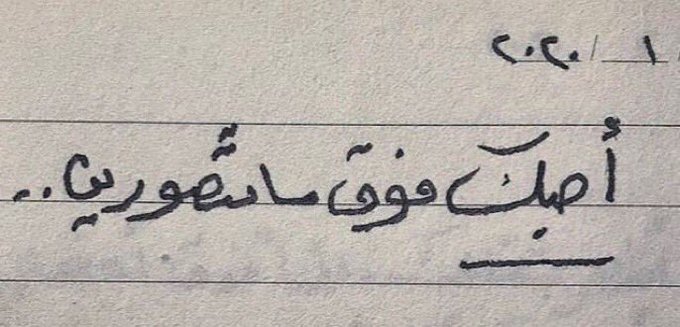 ٢٠٢٠/ ١
أحبك فوق ما تتصورين..